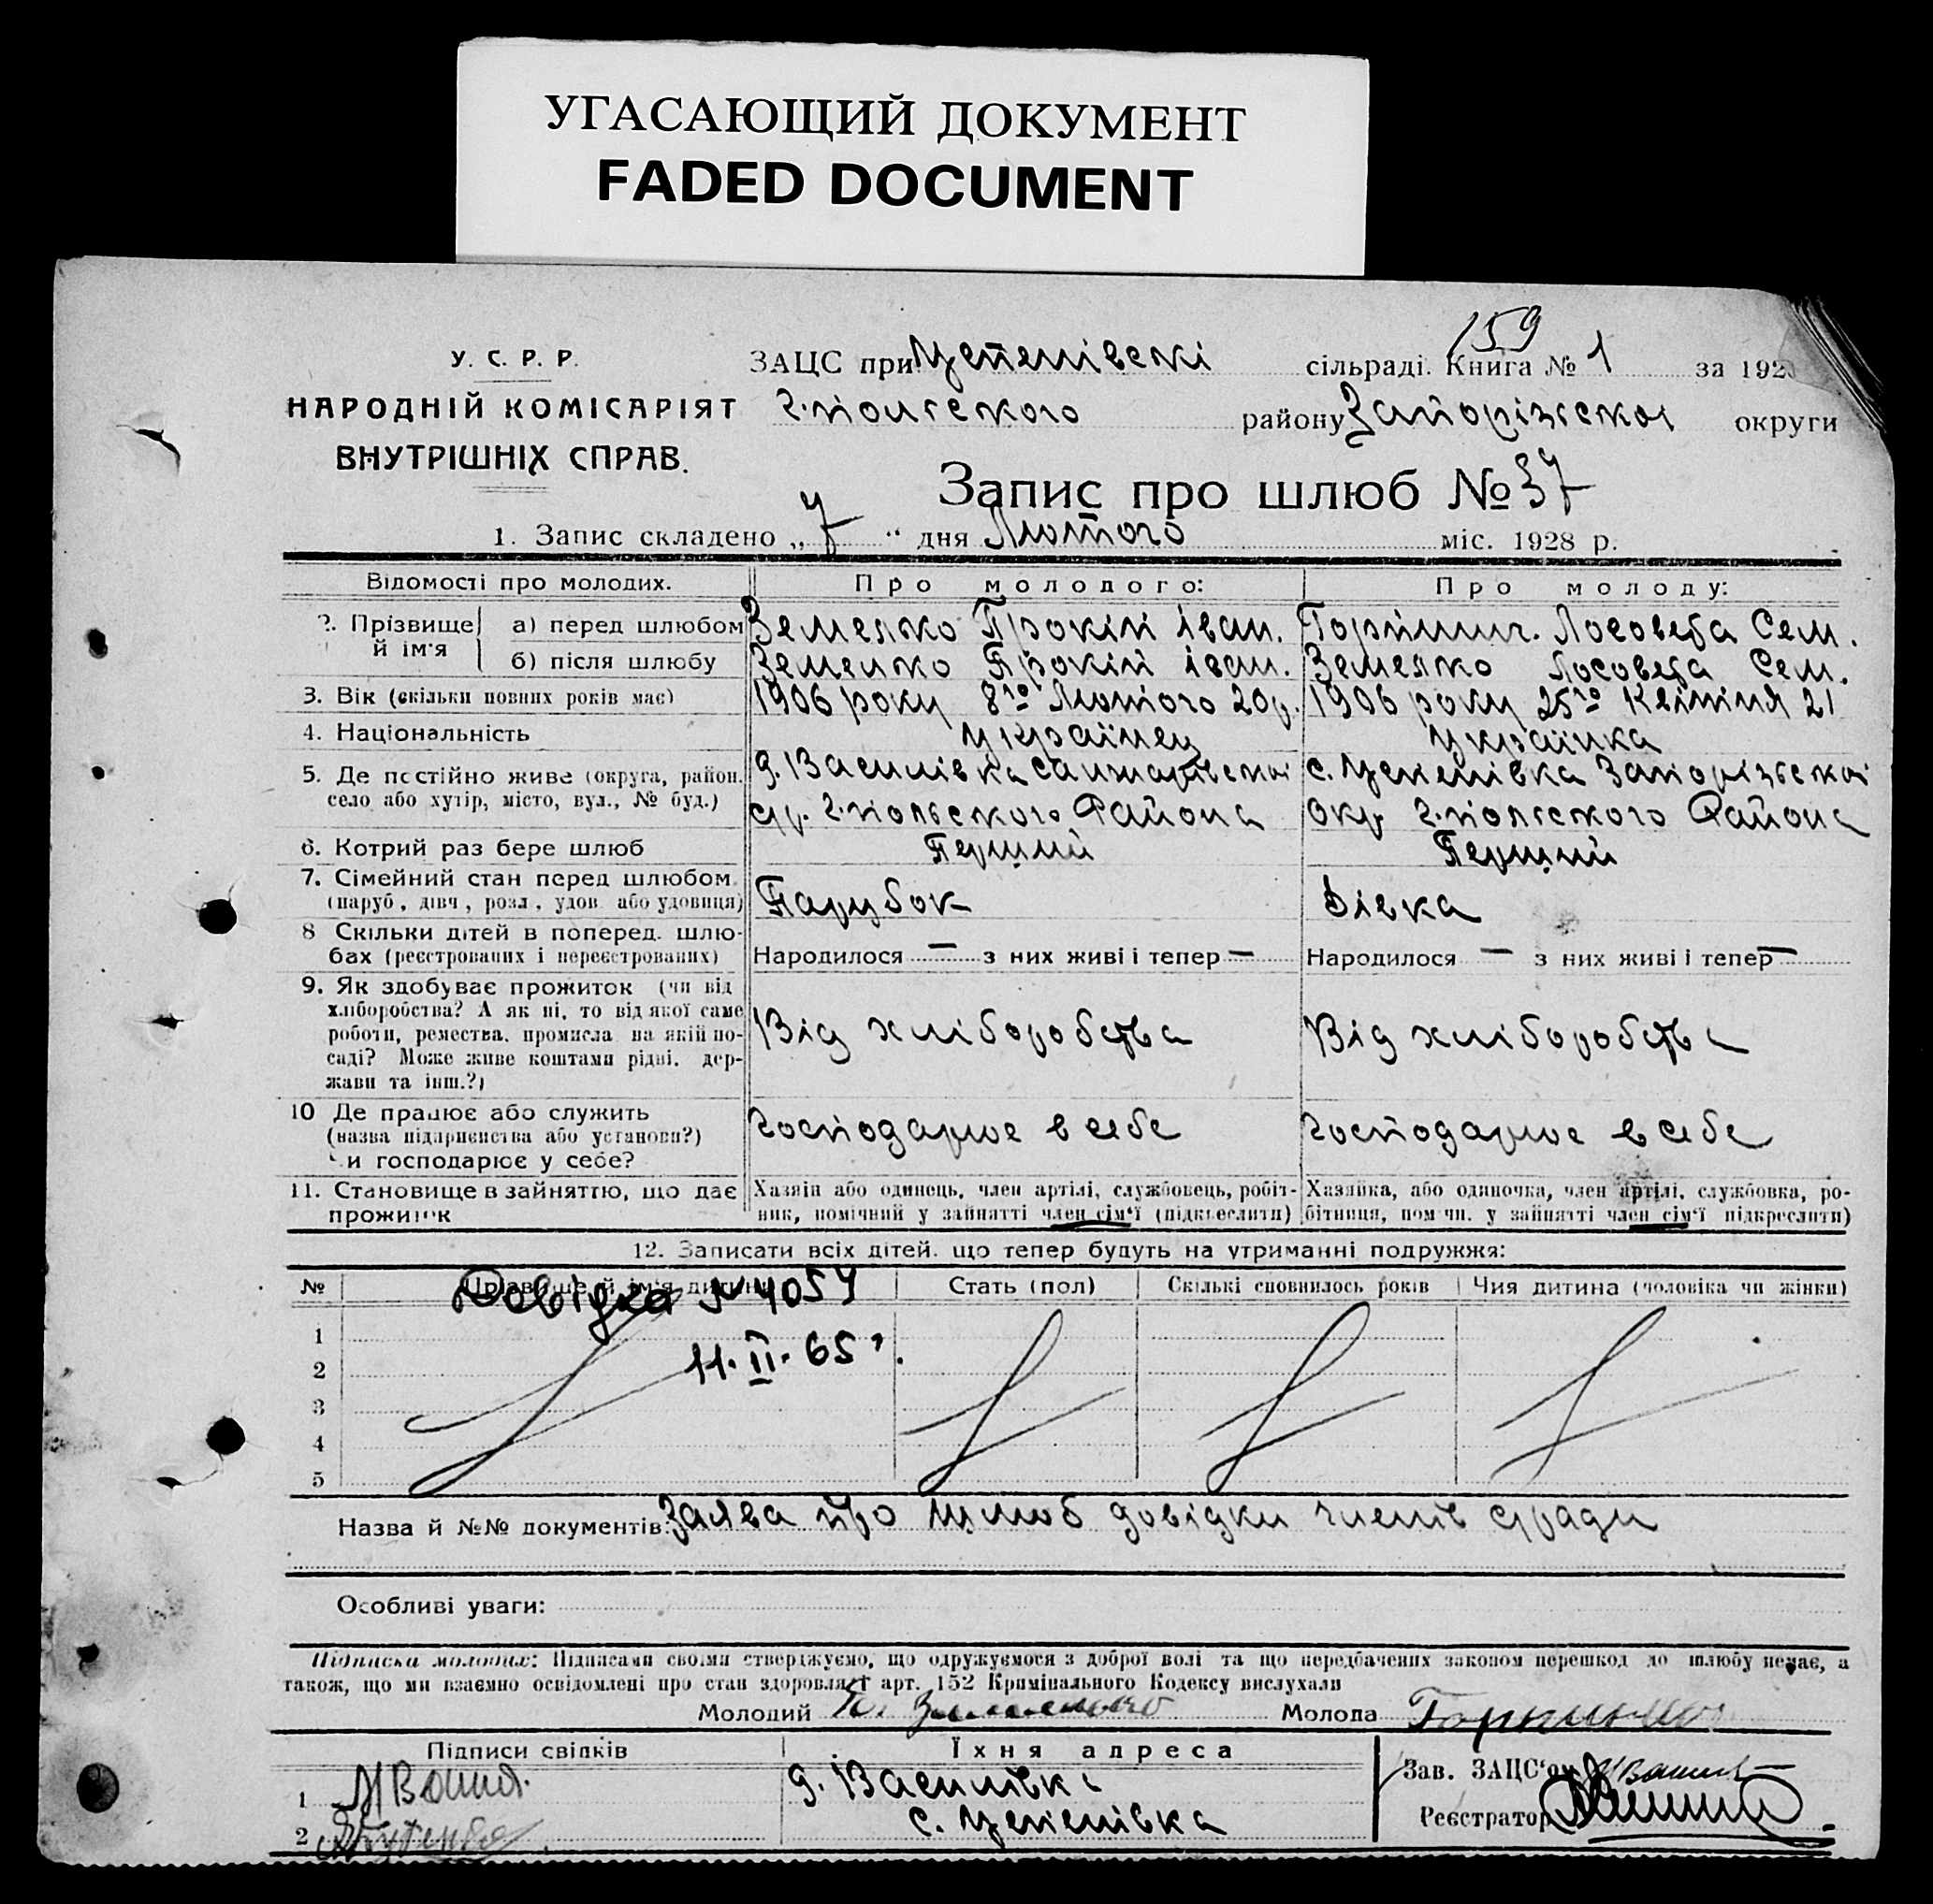 УГАСАЮЩИЙ ДОКУМЕНТ
FADED DOCUMENT
159
У. С. Р. Р.
НАРОДНІЙ КОМІСАРІЯТ
ВНУТРІШНІХ СПРАВ.
ЗАЦС при сільраді. Книга № 1 за 192
г.польского району Запорізської округи
Запис про шлюб № 37
1. Запис складено „ 7 “ дня Лютого міс. 1928 р.
Відомості про молодих. Про молодого: Про молоду:
2. Прізвище й ім'я
а) перед шлюбом Земелько Прокіп Іван. Сем.
б) після шлюбу Земелько Прокіп Іван. Земелько Сем.
3. Вік (скільки повних років має) 1906 року 8го Лютого 20р. 1906 року 25го Квітня 21
4. Національність українец українка
5. Де постійно живе (округа, район, село або хутір, місто, вул., № буд.)
д. Василівка
с/р. г.польского Района
с. Цепелівка Запорізської
окр. г.польского Района
6. Котрий раз бере шлюб Перший Перший
7. Сімейний стан перед шлюбом (паруб., дівч., розл., удов. або удовиця) Парубок Дівка
8 Скільки дітей в поперед. шлюбах (реєстрованих і нереєстрованих) Народилося — з них живі і тепер — Народилося — з них живі і тепер —
9. Як здобуває прожиток (чи від
хліборобства? А як ні, то від якої саме
роботи, ремества, промисла на якій по-
саді? Може живе коштами рідні, дер-
жави та інш.?)
Від хліборобства Від хліборобства
10 Де працює або служить
(назва підприємства або установи?)
Чи господарює у себе?
Господарює в себе Господарює в себе
11. Становище в зайняттю, що дає
прожиток
Хазяїн або одинець, член артілі, службовець, робіт-
ник, помічний у зайнятті член сім'ї (підкреслити)
Хазяйка, або одиночка, член артілі, службовка, ро-
бітниця, помічн. у зайнятті член сім'ї підкреслити)
12. Записати всіх дітей, що тепер будуть на утриманні подружжя:
№ Прізвище й ім'я дитини Стать (пол) Скількі сповнилось років Чия дитина (чоловіка чи жінки)
Довідка № 4054
11.II.65г.
1
2
3
4
5
Назва й №№ документів: Заява про шлюб довідки членів с/ради
Особливі уваги:
Підписка молодих: Підписами своїми стверджуємо, що одружуємося з доброї волі та що передбачених законом перешкод до шлюбу немає, а
також, що ми взаємно освідомлені про стан здоровля й арт. 152 Кримінального Кодексу вислухали
Молодий Молода
Підписи свідків Їхня адреса
1 д. Василівка
2 с. Цепелівка
Зав. ЗАЦС'ом
Реєстратор